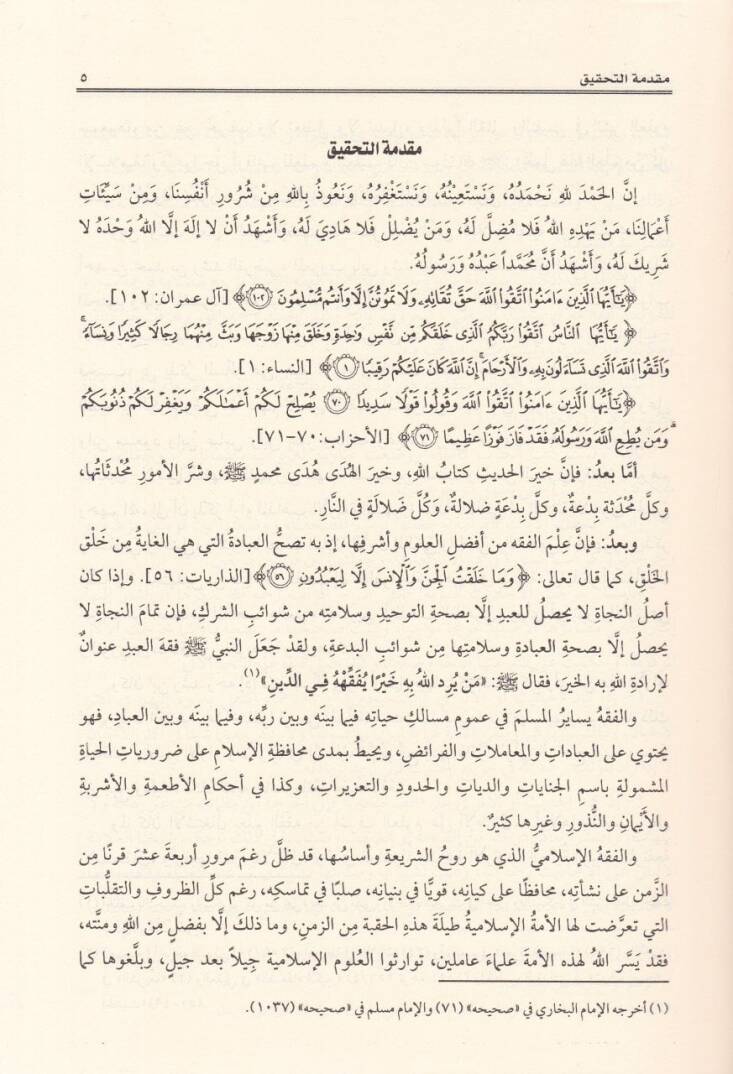 مقدمة التحقيق ٥
مقدمة التحقيق
إنَّ الحَمْدَ للهِ نَحْمَدُهُ، وَنَسْتَعِيْنُهُ، وَنَسْتَغْفِرُهُ، وَنَعُوذُ بِاللهِ مِنْ شُرُورِ أَنْفُسِنَا، وَمِنْ سَيِّئَاتِ
أَعْمَالِنَا، مَنْ يَهْدِهِ اللهُ فَلا مُضِلَّ لَهُ، وَمَنْ يُضْلِلْ فَلا هَادِيَ لَهُ، وَأَشْهَدُ أَنْ لا إلَهَ إلَّا اللهُ وَحْدَهُ لا
شَرِيكَ لَهُ، وَأَشْهَدُ أَنَّ مُحَمَّداً عَبْدُهُ وَرَسُولُهُ.
﴿يَٰٓأَيُّهَا ٱلَّذِينَ ءَامَنُوا۟ ٱتَّقُوا۟ ٱللَّهَ حَقَّ تُقَاتِهِۦ وَلَا تَمُوتُنَّ إِلَّا وَأَنتُم مُّسْلِمُونَ ١٠٢﴾ [آل عمران: ١٠٢].
﴿يَٰٓأَيُّهَا ٱلنَّاسُ ٱتَّقُوا۟ رَبَّكُمُ ٱلَّذِى خَلَقَكُم مِّن نَّفْسٍ وَٰحِدَةٍ وَخَلَقَ مِنْهَا زَوْجَهَا وَبَثَّ مِنْهُمَا رِجَالًا كَثِيرًا وَنِسَآءً ۚ
وَٱتَّقُوا۟ ٱللَّهَ ٱلَّذِى تَسَآءَلُونَ بِهِۦ وَٱلْأَرْحَامَ ۚ إِنَّ ٱللَّهَ كَانَ عَلَيْكُمْ رَقِيبًا ١﴾ [النساء: ١].
﴿يَٰٓأَيُّهَا ٱلَّذِينَ ءَامَنُوا۟ ٱتَّقُوا۟ ٱللَّهَ وَقُولُوا۟ قَوْلًا سَدِيدًا ٧٠ يُصْلِحْ لَكُمْ أَعْمَٰلَكُمْ وَيَغْفِرْ لَكُمْ ذُنُوبَكُمْ
ۗ وَمَن يُطِعِ ٱللَّهَ وَرَسُولَهُۥ فَقَدْ فَازَ فَوْزًا عَظِيمًا ٧١﴾ [الأحزاب: ٧٠-٧١].
أمَّا بعدُ: فإنَّ خيرَ الحديثِ كتابُ اللهِ، وخيرَ الهُدَى هُدَى محمدٍ ﷺ، وشرَّ الأمورِ مُحْدَثاتُها،
وكلَّ مُحْدَثة بِدْعةٌ، وكلَّ بِدْعةٍ ضلالةٌ، وَكُلَّ ضَلالَةٍ في النَّارِ.
وبعدُ: فإنَّ عِلْمَ الفقه من أفضلِ العلومِ وأشرفِها، إذ به تصحُّ العبادةُ التي هي الغايةُ مِن خَلْق
الخَلْقِ، كما قال تعالى: ﴿وَمَا خَلَقْتُ ٱلْجِنَّ وَٱلْإِنسَ إِلَّا لِيَعْبُدُونِ ٥٦﴾ [الذاريات: ٥٦]. وإذا كان
أصلُ النجاةِ لا يحصلُ للعبدِ إلَّا بصحةِ التوحيدِ وسلامتِه من شوائبِ الشركِ، فإن تمامَ النجاةِ لا
يحصلُ إلَّا بصحةِ العبادةِ وسلامتِها مِن شوائبِ البدعةِ، ولقدْ جَعَلَ النبيُّ ﷺ فقهَ العبدِ عنوانٌ
لإرادةِ اللهِ به الخيرَ، فقال ﷺ: «مَنْ يُرِد اللهُ بِهِ خَيْرًا يُفَقِّهْهُ فِـي الدِّينِ»(١).
والفقهُ يسايرُ المسلمَ في عمومِ مسالكِ حياتِه فيما بينَه وبين ربِّه، وفيما بينَه وبين العبادِ، فهو
يحتوي على العباداتِ والمعاملاتِ والفرائضِ، ويحيطُ بمدى محافظةِ الإسلامِ على ضرورياتِ الحياةِ
المشمولةِ باسمِ الجناياتِ والدياتِ والحدودِ والتعزيراتِ، وكذا في أحكامِ الأطعمةِ والأشربةِ
والأَيْمانِ والنُّذورِ وغيرِها كثيرٌ.
والفقهُ الإسلاميُّ الذي هو روحُ الشريعةِ وأساسُها، قد ظلَّ رغمَ مرورِ أربعةَ عشرَ قرنًا مِن
الزَّمن على نشأتِه، محافظًا على كيانِه، قويًّا في بنيانِه، صلبًا في تماسكِه، رغم كلِّ الظروفِ والتقلُّباتِ
التي تعرَّضت لها الأمةُ الإسلاميةُ طيلَةَ هذه الحقبة مِن الزمنِ، وما ذلكَ إلَّا بفضلٍ مِن اللهِ ومنَّته،
فقدْ يَسَّر اللهُ لهذه الأمةِ علماءَ عاملين، توارثوا العُلومَ الإسلامية جِيلاً بعد جيلٍ، وبلَّغوها كما
(١) أخرجه الإمام البخاري في «صحيحه» (٧١) والإمام مسلم في «صحيحه» (١٠٣٧).